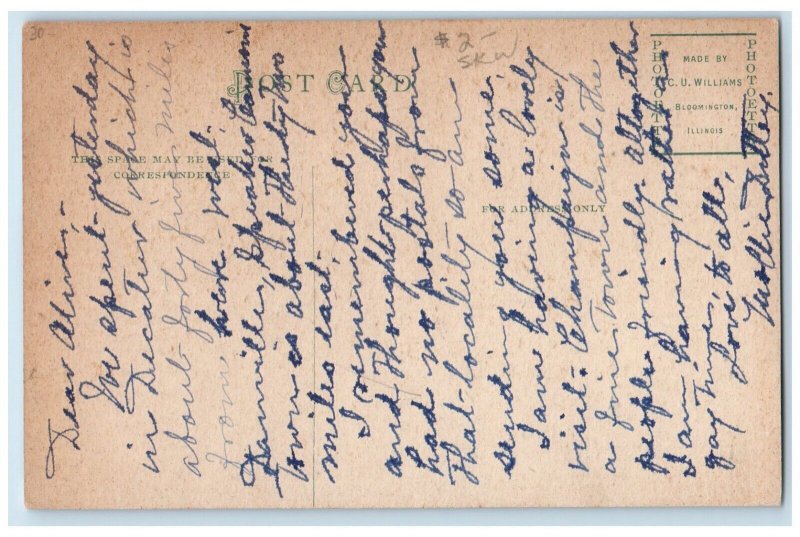 30-
# 2-
SKW
POST CARD
THIS SPACE MAY BE USED FOR
CORRESPONDENCE
FOR ADDRESS ONLY
PHOTOETTE
MADE BY
C. U. WILLIAMS
BLOOMINGTON,
ILLINOIS
PHOTOETTE
Dear Alines,-
We spent yesterday
in Decatur which is
about forty five miles
from here- west.
Danville, Speaker Cannon's
town is about thirty two
miles east-
I remembered you
and thought perhaps you
had no postals from
that locality so am
sending you some.
I am having a lovely
visit. Champaign is
a fine town and the
people friendly altogether
I am having rather a
gay time.
Love to all,
Mollie